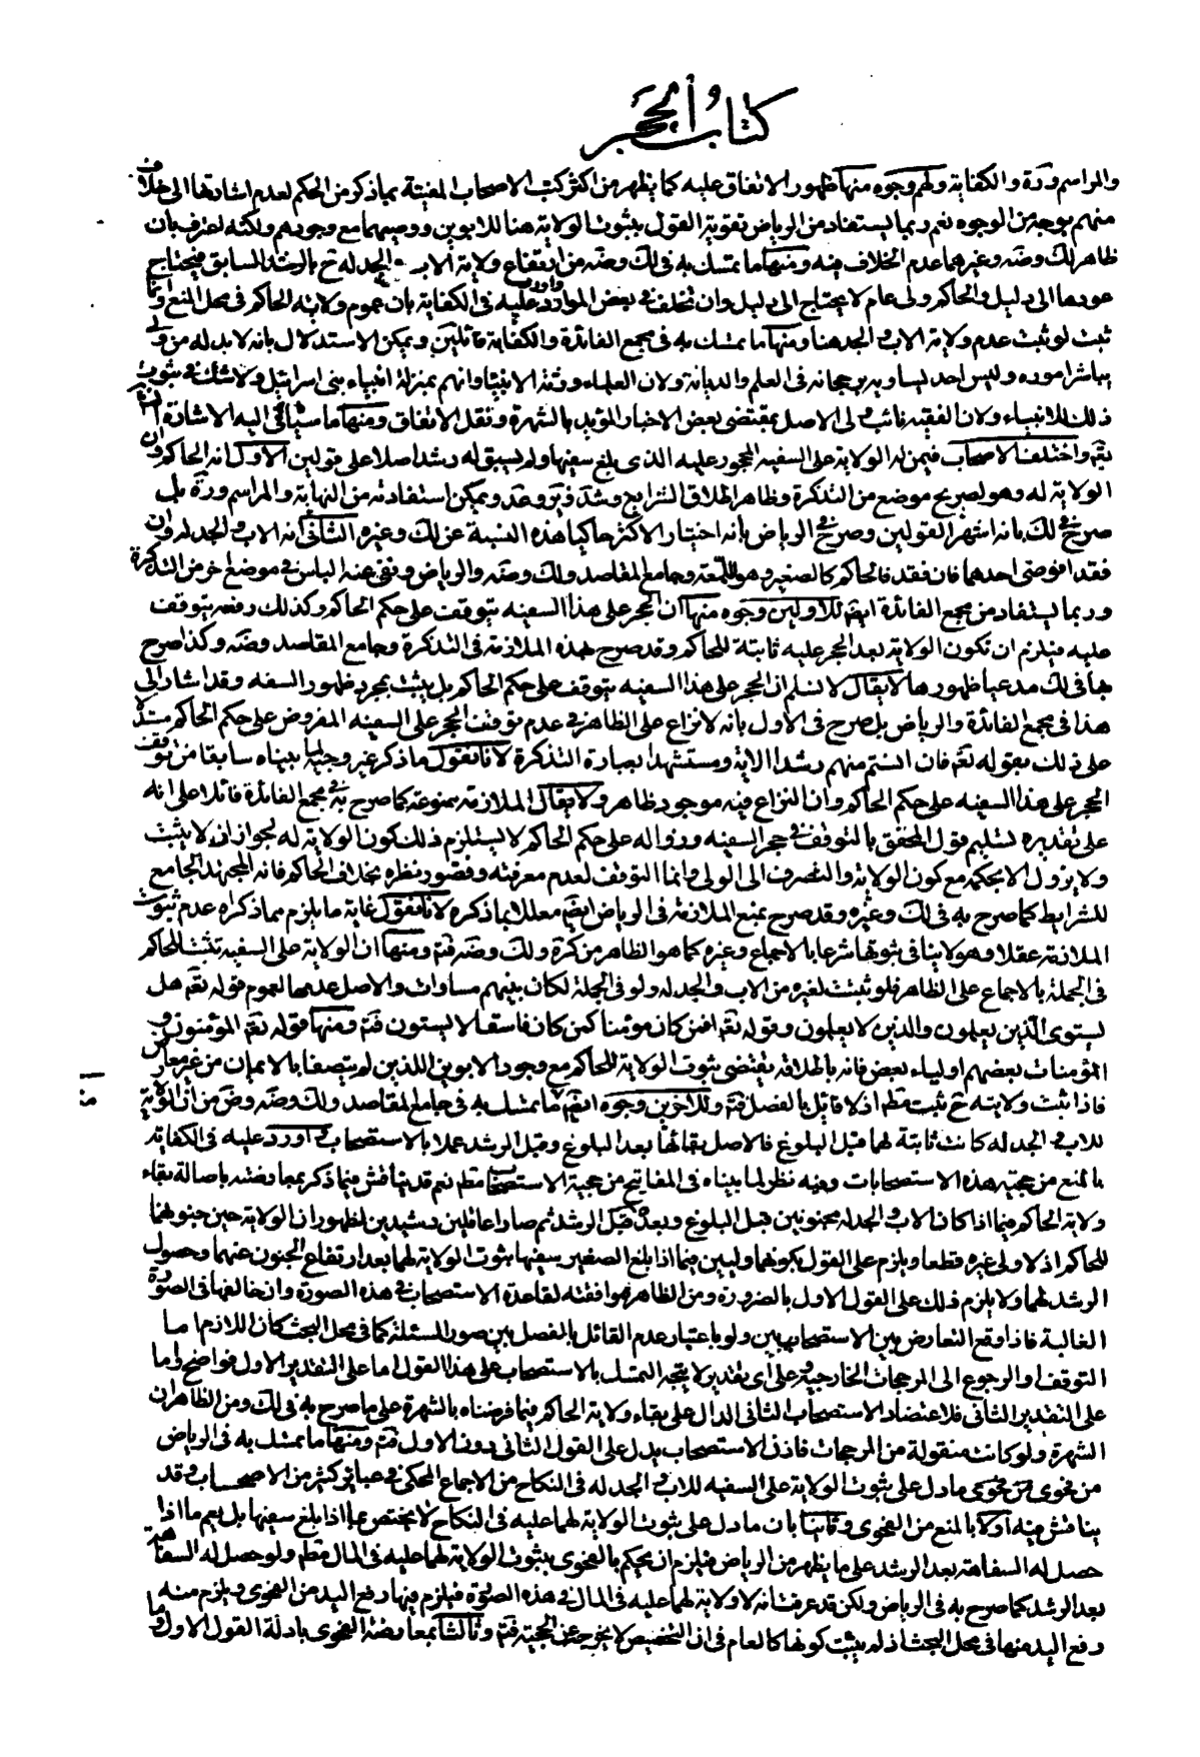 كتاب الحجر
والمراسم ودة والكفاية ولهم وجوه منها ظهور الاتفاق عليه كما يظهر من اكثر كتب الاصحاب المفتية بما ذكر من الحكم لعدم اشارتها الى خلاف
منهم بوجه من الوجوه نعم ربما يستفاد من الرياض تقوية القول بثبوت الولاية هنا للابوين ووصيهما مع وجودهم ولكنه اعترف بان
ظاهر لك وضه وغيرهما عدم الخلاف فيه ومنها ما تمسك به فى لك وضه من ارتفاع ولاية الاب والجد له ح بالرشد السابق فيحتاج
عودها الى دليل والحاكم ولى عام لا يحتاج الى دليل وان تخلف فى بعض الموارد واورد عليه فى الكفاية بان عموم ولاية الحاكم فى محل المنع وانما
ثبت لو ثبت عدم ولاية الاب والجد هنا ومنها ما تمسك به فى مجمع الفائدة والكفاية قائلين ويمكن الاستدلال بانه لابد له من ولى
يباشر اموره وليس احد يساويه برجحانه فى العلم والديانة ولان العلماء ورثة الانبياء وانهم بمنزلة انبياء بنى اسرائيل ولا شك فى ثبوت
ذلك للانبياء ولان الفقيه نائب ولى الاصل بمقتضى بعض الاخبار المؤيد بالشهرة ونقل الاتفاق ومنها ما سيأتى اليه الاشارة ان شاء الله
تعالى واختلف الاصحاب فيمن له الولاية على السفيه المحجور عليه الذى بلغ سفيها ولم يسبق له رشد اصلا على قولين الاول انه الحاكم وان
الولاية له وهو لصريح موضع من التذكرة وظاهر اطلاق الشرايع وشد وير وعد ويمكن استفادته من النهاية والمراسم ورة بل
صرح فى لك بانه اشهر القولين وصرح فى الرياض بانه اختيار الاكثر حاكيا هذه النسبة عن لك وغيره الثانى انه الاب والجد له وان
فقدا فوصى احدهما فان فقد فالحاكم كالصغير وهو للمعة وجامع المقاصد ولك وضه والرياض ونفى عنه الباس فى موضع اخر من التذكرة
وربما يستفاد من مجمع الفائدة ايضا للاولين وجوه منها ان الحجر على هذا السفيه يتوقف على حكم الحاكم وكذلك رفعه يتوقف
عليه فيلزم ان تكون الولاية بعد الحجر عليه ثابتة للحاكم وقد صرح بهذه الملازمة فى التذكرة وجامع المقاصد وضه وكذا صرح
بها فى لك مدعيا ظهورها لا يقال لا نسلم ان الحجر على هذا السفيه يتوقف على حكم الحاكم بل يثبت بمجرد ظهور السفه وقد اشار الى
هذا فى مجمع الفائدة والرياض بل صرح فى الاول بانه لا نزاع على الظاهر فى عدم توقف الحجر على السفيه المفروض على حكم الحاكم مستدلا
على ذلك بقوله تعالى فان انستم منهم رشدا الاية ومستشهدا بعبارة التذكرة لانا نقول ما ذكر غير وجيه لما بيناه سابقا من توقف
الحجر على هذا السفيه على حكم الحاكم وان النزاع فيه موجود ظاهر ولا يقال الملازمة ممنوعة كما صرح به فى مجمع الفائدة قائلا على انه
على تقدير تسليم قول المحقق بالتوقف فى حجر السفيه وزواله على حكم الحاكم لا يستلزم ذلك كون الولاية له لجواز ان لا يثبت
ولا يزول الا بحكمه مع كون الولاية والتصرف الى الولى وانما التوقف لعدم معرفته وقصور نظره بخلاف الحاكم فانه المجتهد الجامع
للشرايط كما صرح به فى لك وغيره وقد صرح بمنع الملازمة فى الرياض ايضا معللا بما ذكره لانا نقول غاية ما يلزم مما ذكراه عدم ثبوت
الملازمة عقلا وهو لا ينافى ثبوتها شرعا بالاجماع وغيره كما هو الظاهر من كرة ولك وضه فتم ومنها ان الولاية على السفيه تثبت للحاكم
فى الجملة بالاجماع على الظاهر فلو ثبتت لغيره من الاب والجد له ولو فى الجملة لكان بينهم مساوات والاصل عدمها لعموم قوله تعالى هل
يستوى الذين يعلمون والذين لا يعلمون وقوله تعالى افمن كان مؤمنا كمن كان فاسقا لا يستون فتم ومنها قوله تعالى المؤمنون و
المؤمنات بعضهم اولياء بعض فانه باطلاقه يقتضى ثبوت الولاية للحاكم مع وجود الابوين اللذين لم يتصفا بالايمان من غير معارض
فاذا ثبت ولايته ح ثبت مطلقا اذ لا قائل بالفصل فتم وللاخرين وجوه ايضا منها ما تمسك به فى جامع المقاصد ولك وضه وض من ان الولاية
للاب والجد له كانت ثابتة لهما قبل البلوغ فالاصل بقائها بعد البلوغ وقبل الرشد عملا بالاستصحاب واورد عليه فى الكفاية
بالمنع من حجية هذه الاستصحابات وفيه نظر لما بيناه فى المفاتيح من حجية الاستصحاب مطلقا نعم قد يناقش فيما ذكر بمعارضته باصالة بقاء
ولاية الحاكم فيما اذا كان الاب والجد له مجنونين قبل البلوغ وبعده قبل الرشد ثم صارا عاقلين رشيدين لظهور ان الولاية حين جنونهما
للحاكم اذ لا ولى غيره قطعا ويلزم على القول بكونهما وليين فيما اذا بلغ الصغير سفيها ثبوت الولاية لهما بعد ارتفاع الجنون عنهما وحصول
الرشد لهما ولا يلزم ذلك على القول الاول بالضرورة ومن الظاهر موافقته لقاعدة الاستصحاب فى هذه الصورة وان خالفها فى الصورة
الغالبة فاذا وقع التعارض بين الاستصحابين ولو باعتبار عدم القائل بالفصل بين صور المسئلة كما فى محل البحث كان اللازم اما
التوقف او الرجوع الى المرجحات الخارجية وعلى اى تقدير لا يتجه التمسك بالاستصحاب على هذا القول اما على التقدير الاول فواضح واما
على التقدير الثانى فلاعتضاد الاستصحاب الثانى الدال على بقاء ولاية الحاكم فيما فرضناه بالشهرة على ما صرح به فى لك ومن الظاهر ان
الشهرة ولو كانت منقولة من المرجحات فاذن الاستصحاب يدل على القول الثانى دون الاول فتم ومنها ما تمسك به فى الرياض
من فحوى ما دل على ثبوت الولاية على السفيه للاب والجد له فى النكاح من الاجماع المحكى فى عباير كثير من الاصحاب وقد
يناقش فيه اولا بالمنع من الفحوى وثانيا بان ما دل على ثبوت الولاية لهما عليه فى النكاح لا يختص بما اذا بلغ سفيها بل يعم ما اذا
حصل له السفاهة بعد الرشد على ما يظهر من الرياض فيلزم ان يحكم بالفحوى بثبوت الولاية لهما عليه فى المال مطلقا ولو حصل له السفاهة
بعد الرشد كما صرح به فى الرياض ولكن قد عرفت انه لا ولاية لهما عليه فى المال فى هذه الصورة فيلزم فيها رفع اليد من الفحوى ويلزم منه
رفع اليد منها فى محل البحث اذ لم يثبت كونها كالعام فى ان التخصيص لا يخرجه عن الحجية فتم وثالثا بمعارضة الفحوى بادلة القول الاول و